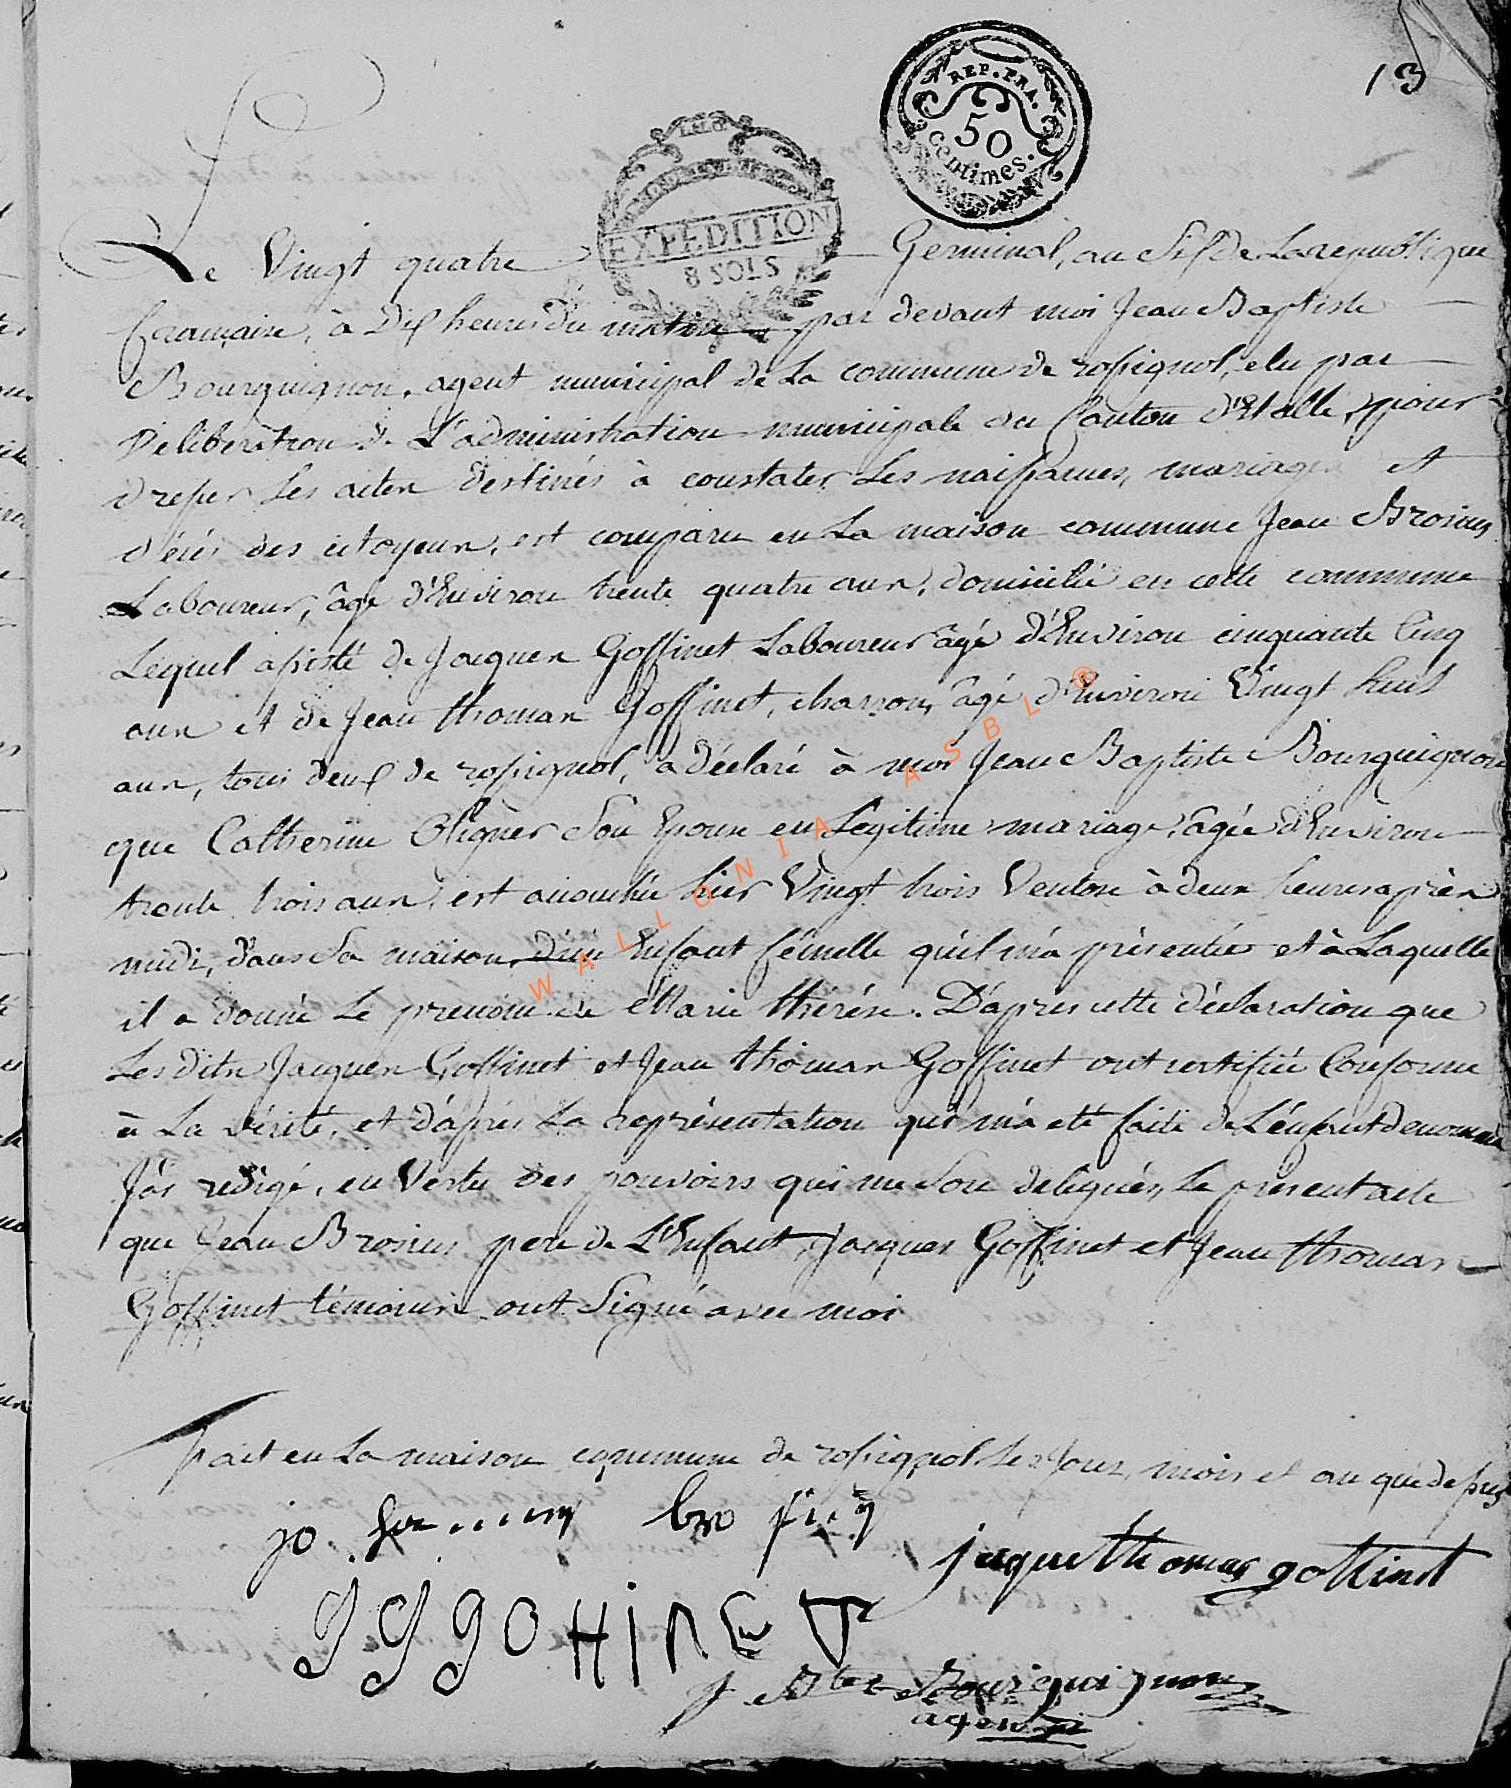 13
REP. FRA.
50
centimes.
EXPEDITION
8 SOLS
Le Vingt quatre Germinal, an Six de La republique
francaise, à Dix heures du matin par devant moi Jean Baptiste
Bourguignon, agent municipal de La commune de rossignol, elu par
Deliberation de L'administration municipale du Canton d'Etalle, pour
dresser Les actes destinés à constater Les naissances, mariages et
décés des citoyens, est comparu en La maison commune Jean Brosius
Laboureur, âgé d'Environ trente quatre ans, domicilié en cette commune
Lequel assisté de Jacques Goffinet Laboureur âgé d'Environ cinquante Cinq
ans et de Jean thomas Goffinet, charron, âgé d'Environ Vingt huit
ans, tous deux de rossignol, a déclaré à moi Jean Baptiste Bourguignon
que Catherine Son Epouse en Légitime mariage, âgée d'Environ
trente trois ans, est accouchée hier Vingt trois Ventose à deux heures après
midi, dans Sa maison, d'un Enfant fémelle qu'il m'a présentée et à Laquelle
il a donné Le prenom de Marie thérése. D'après cette déclaration que
Les dits Jacques Goffinet et Jean thomas Goffinet ont certifiée Conforme
à La vérité, et d'après La représentation qui m'a eté faite de L'énfant denommé
J'ai redigé, en Vertu des pouvoirs qui me Son delegués, Le présent acte
que Jean Brosius pere de L'Enfant, Jacques Goffinet et Jean thomas
Goffinet témoins ont Signé avec moi
Fait en La maison commune de rossignol Les Jour, mois et an que dessus
jo bro
jaque thomas goffinet
J J GOHINET
J Bte Bourguignon
agent
WALLONIA ASBL ®